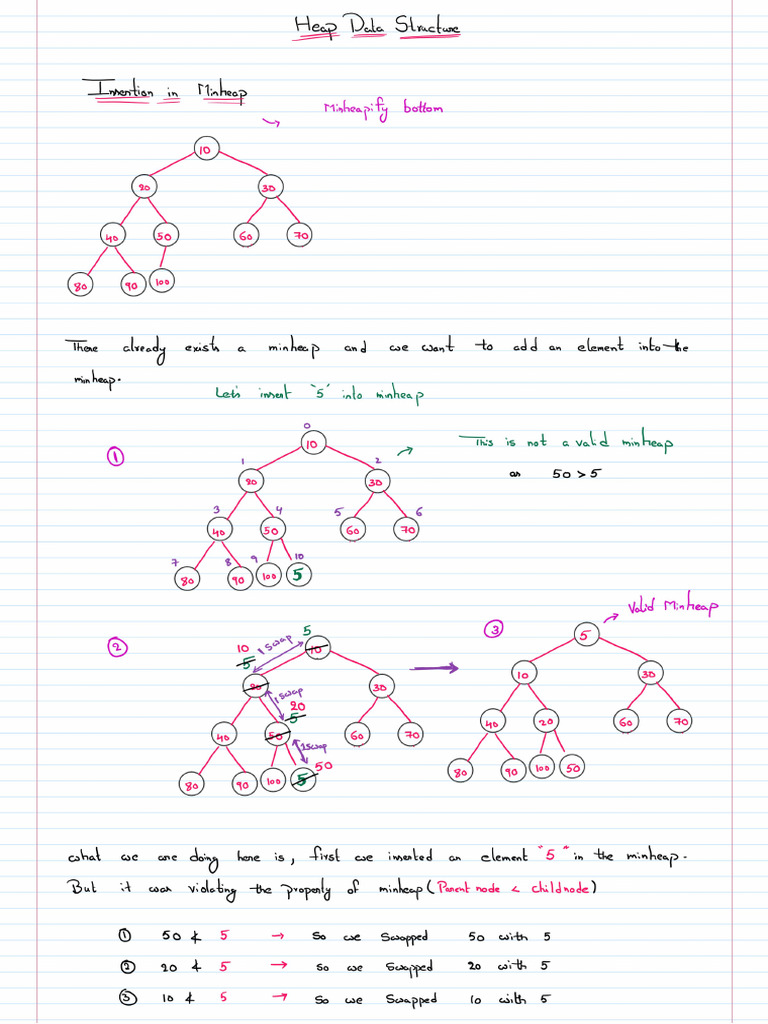 Heap Data Structure
Insertion in Minheap
Minheapify bottom
10
20 30
40 50 60 70
80 90 100
There already exists a minheap and we want to add an element into the
minheap.
Let's insert "5" into minheap
1
This is not a valid minheap
as 50 > 5
0
10
1 2
20 30
3 4 5 6
40 50 60 70
7 8 9 10
80 90 100 5
2
5
10 1 swap 10
5
20 1 swap 30
20
5
40 50 60 70
1 swap 50
80 90 100 5
3
Valid Minheap
5
10 30
40 20 60 70
80 90 100 50
what we are doing here is, first we inserted an element "5" in the minheap.
But it was violating the property of minheap (Parent node < child node)
1 50 & 5 → So we swapped 50 with 5
2 20 & 5 → So we swapped 20 with 5
3 10 & 5 → So we swapped 10 with 5